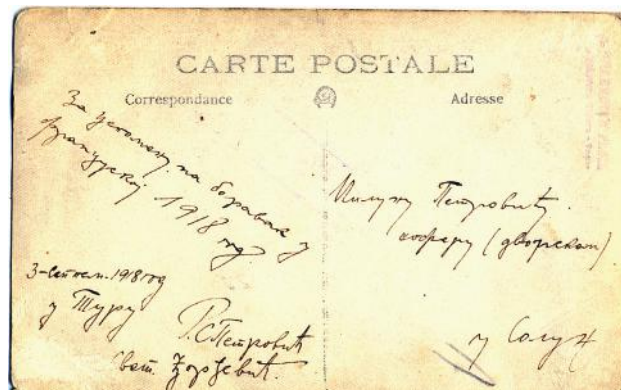 CARTE POSTALE
Correspondance
Adresse
За успомену на боравак у
Француској 1918 год.
3-септем. 1918 год
у Туру
Р. С. Петровић
Ђорђевић.
Милуну Петровићу
шоферу (дворском)
у Солун